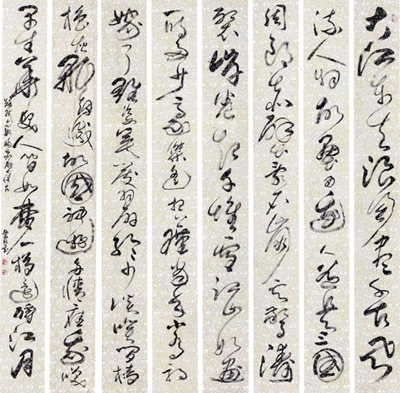 大江东去浪淘尽千古风
流人物故垒西边人道是三國
周郎赤壁乱石崩云惊涛
裂岸卷起千堆雪江山如画
一时多少豪杰遥想公瑾当年小乔初
嫁了雄姿英发羽扇纶巾谈笑间樯
橹灰飞烟灭故國神游多情应
早生華发人间如梦一樽还酹江月